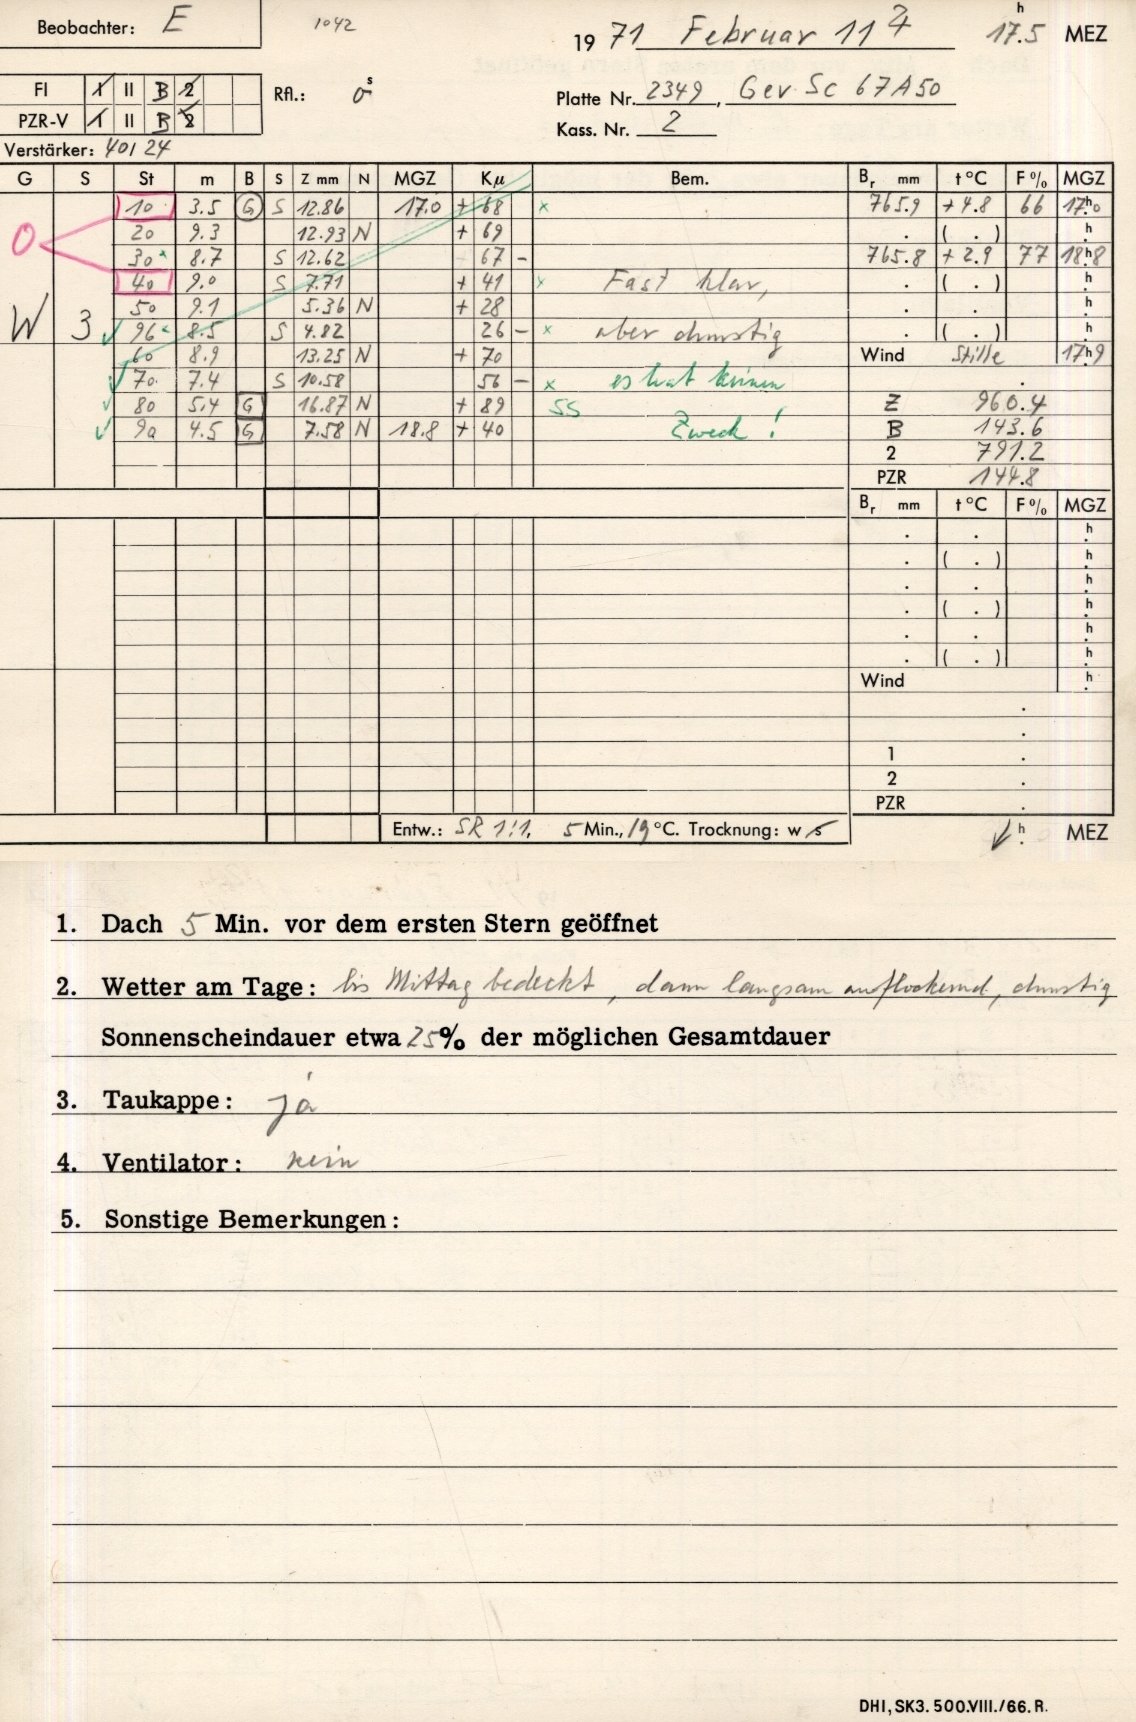 Beobachter: E 1042 1971 Februar 11 4 17.5 h MEZ
FI I II B 2 Rfl.: 0 s Platte Nr. 2349, Gev. Sc 67A50
PZR-V I II B 2 Kass. Nr. 2
Verstärker: 40/24
G S St m B S Z mm N MGZ Kμ Bem. Br mm t °C F % MGZ
10 3.5 G S 12.86 17.0 + 68 x 765.9 + 4.8 66 17h0
20 9.3 12.93 N + 69 . ( . ) h
O 30 x 8.7 S 12.62 67 - 765.8 + 2.9 77 18h8
40 9.0 S 7.71 + 41 x Fast klar, . ( . ) h
50 9.1 5.36 N + 28 . . h
W 3 ✓ 96 x 8.5 S 4.82 26 - x aber dunstig . ( . ) h
60 8.9 13.25 N + 70 Wind Stille 17h9
✓ 70 7.4 S 10.58 56 - x es hat keinen .
✓ 80 5.4 G 16.87 N + 89 SS Z 960.4
✓ 9a 4.5 G 7.58 N 18.8 + 40 Zweck! B 143.6
2 791.2
PZR 144.8
Br mm t °C F % MGZ
. . h
. ( . ) h
. . h
. ( . ) h
. . h
. ( . ) h
Wind h
.
.
1 .
2 .
PZR .
Entw.: SR 1:1, 5 Min., 19 °C. Trocknung: w s h MEZ
1. Dach 5 Min. vor dem ersten Stern geöffnet
2. Wetter am Tage: bis Mittag bedeckt, dann langsam auflockernd, dunstig
Sonnenscheindauer etwa 25% der möglichen Gesamtdauer
3. Taukappe: ja
4. Ventilator: nein
5. Sonstige Bemerkungen:
DHI, SK3. 500.VIII./66. R.